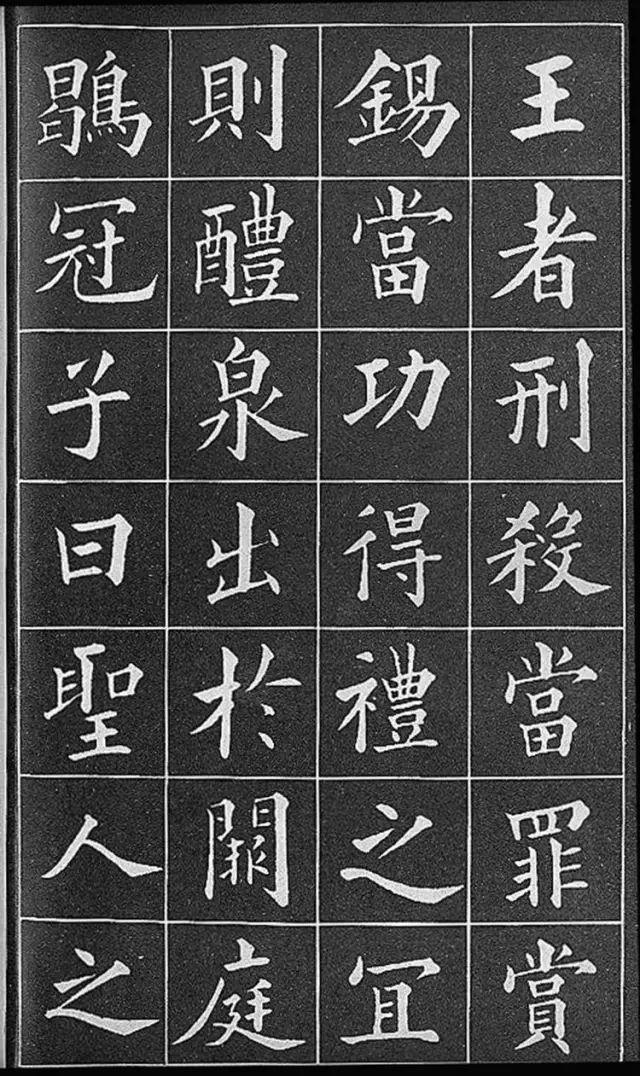 王者刑殺當罪賞
錫當功得禮之宜
則醴泉出於闕庭
鶡冠子曰聖人之